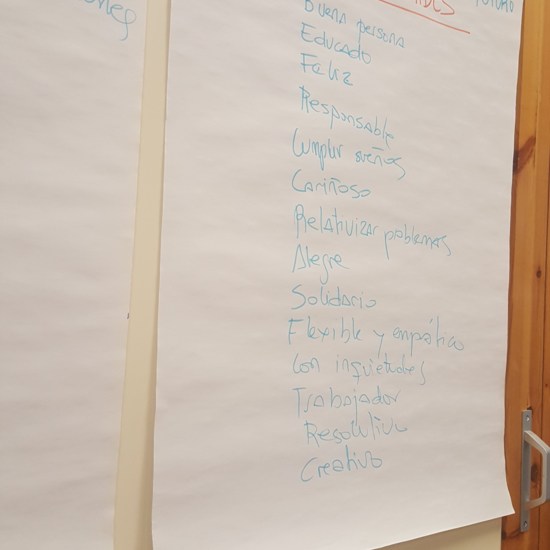 Buena persona
Educado
Feliz
Responsable
Cumplir sueños
Cariñoso
Relativizar problemas
Alegre
Solidario
Flexible y empático
Con inquietudes
Trabajador
Resolutivo
Creativo